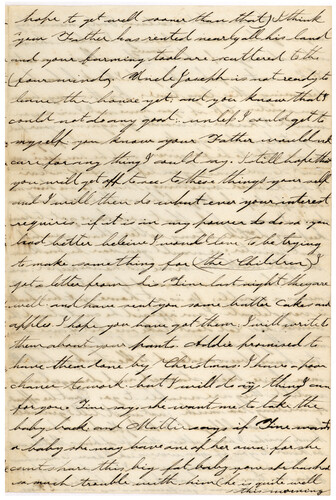 hope to get well sooner than that) I think
your Father has rented nearly all his land
and your farming tools are scattered to the
(four winds) Uncle Joseph is not ready to
leave the house yet. and you know that I
could not do any good, unless I could get to
myself you know your Father would not
care for any thing I could say. I still hope that
you will get off to see to these things your self
but I will then do what ever your interest
requires, if it is in my power to do so you
had better beleive I would love to be trying
to make something for (the Children) I
got a letter from Tine last night they are
well and have sent you some butter cakes and
apples I hope you have got them, I will write to
them about your pants Addie promised to
have them done by Christmas. I have a poor
chance to work but I will do any thing I can
for you. Tine says she want me to take the
baby back, and Mattie says if Tine wants
a baby she may have one of her own for she
can't spare this big fat baby, now she has had
so much trouble with him (he is quite well
this morning